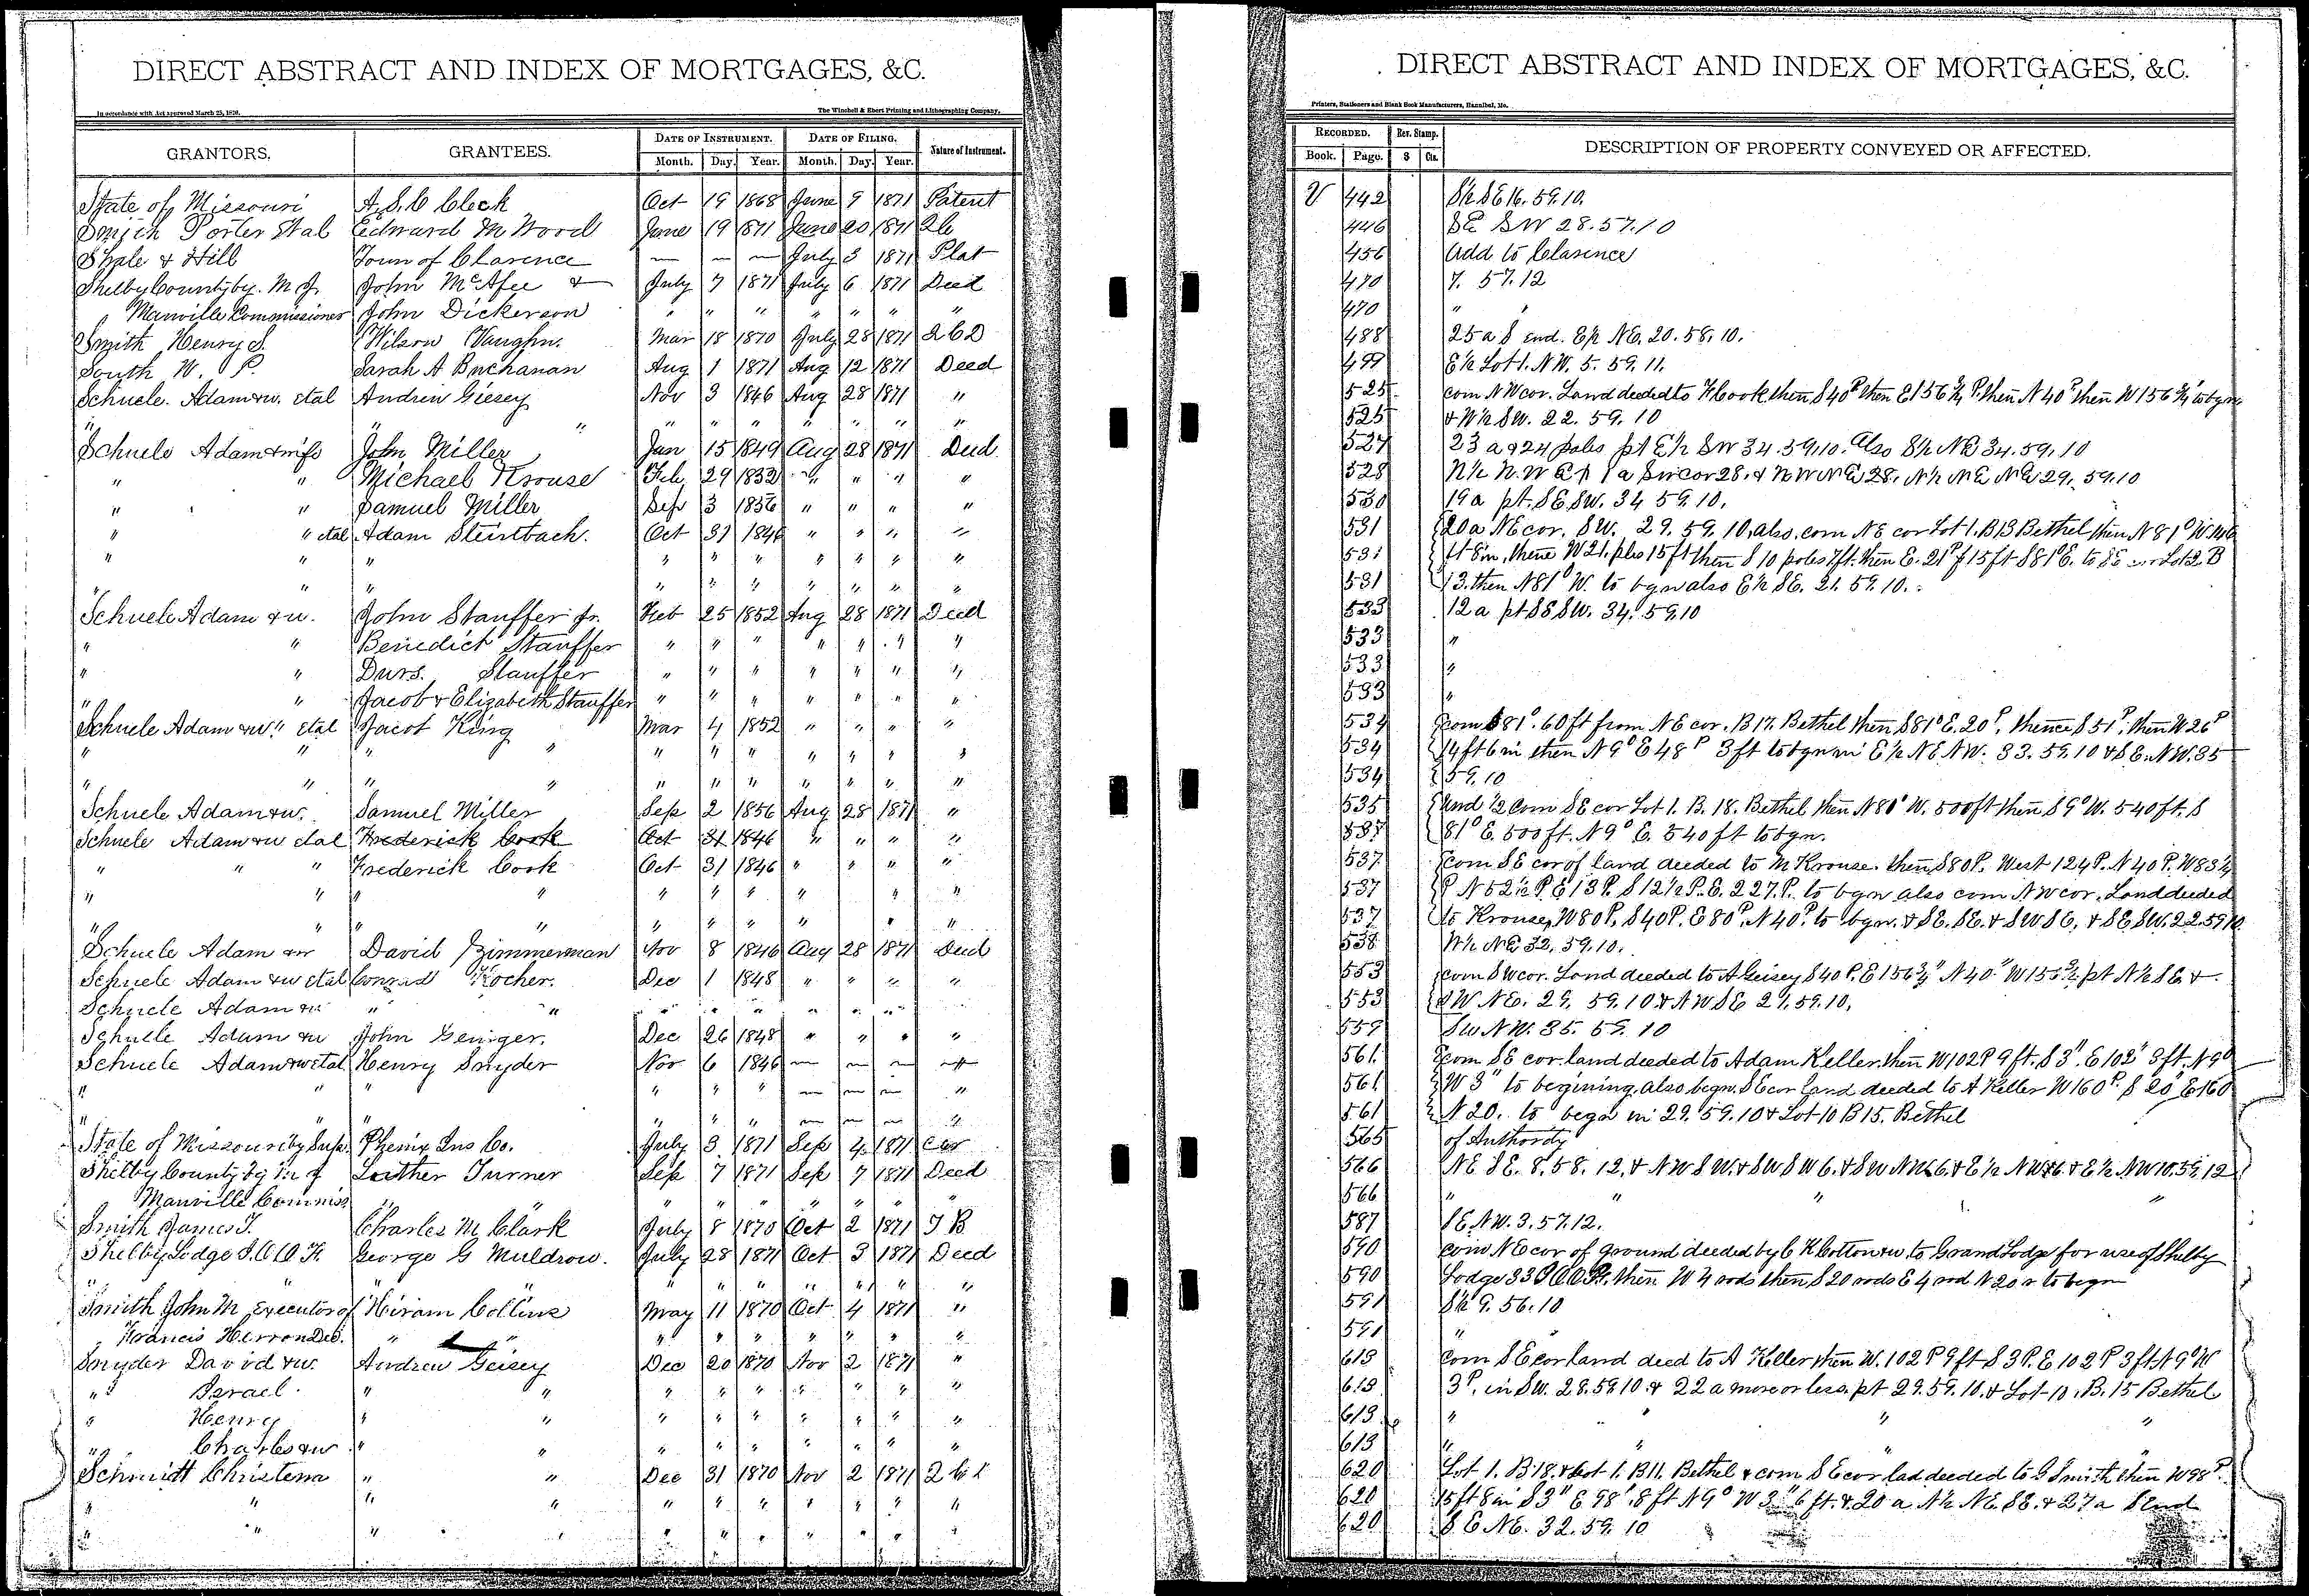 DIRECT ABSTRACT AND INDEX OF MORTGAGES, &C.
In accordance with Act approved March 25, 1870.
The Winchell & Ebert Printing and Lithographing Company,
GRANTORS. GRANTEES. DATE OF INSTRUMENT. DATE OF FILING. Nature of Instrument.
Month. Day. Year. Month. Day. Year.
State of Missouri A. S. C Cleck Oct 19 1868 June 9 1871 Patent
Smith Porter etal Edward M Wood June 19 1871 June 20 1871 2b
Shale & Hill Town of Clarence — — — July 3 1871 Plat
Shelby County by. M J. John McAfee & July 7 1871 July 6 1871 Deed
Manville Commissioner John Dickerson " " " " " " "
Smith Henry S. Wilson Vaughn. Mar 18 1870 July 28 1871 2 C D
South W. P. Sarah A Buchanan Aug 1 1871 Aug 12 1871 Deed
Schuele. Adam & w. etal Andrew Giesey Nov 3 1846 Aug 28 1871 "
" " " " " " " " " "
Schuele Adam & wife John Miller Jan 15 1849 Aug 28 1871 Deed
" " Michael Krouse Feb. 29 1832 " " " "
" " Samuel Miller Sep 3 1856 " " " "
" " etal Adam Steinbach. Oct 31 1846 " " " "
" " " " " " " " " "
" " " " " " " " " "
Schuele Adam & w. John Stauffer Jr. Feb 25 1852 Aug 28 1871 Deed
" " Benedict Stauffer " " " " " " "
" " Durs. Stauffer " " " " " " "
" " Jacob & Elizabeth Stauffer " " " " " " "
Schuele Adam & w. " etal Jacob King Mar 4 1852 " " " "
" " " " " " " " " " "
" " " " " " " " " " "
Schuele Adam & w. Samuel Miller Sep 2 1856 Aug 28 1871 "
Schuele Adam & w etal Frederick Cook Oct 31 1846 " " " "
" " " Frederick Cook Oct 31 1846 " " " "
" " " " " " " " " " "
" " " " " " " " " " "
Schuele Adam & w David Zimmerman Nov 8 1846 Aug 28 1871 Deed
Schuele Adam & w etal Conrad Kocher. Dec 1 1848 " " " "
Schuele Adam & w " " " " " " " " "
Schuele Adam & w John Geniger. Dec 26 1848 " " " "
Schuele Adam & w etal Henry Snyder Nov 6 1846 — — — "
" " " " " " — — — "
" " " " " " — — — "
State of Missouri by Supt. Phenix Ins Co. July 3 1871 Sep 4 1871 Cer
Shelby County by M J Luther Turner Sep 7 1871 Sep 7 1871 Deed
Manville Commiss " " " " " " " " "
Smith James T. Charles M Clark July 8 1870 Oct 2 1871 T B
Shelby Lodge I.O.O.F. George G Muldrow. July 28 1871 Oct 3 1871 Deed
" " " " " " " " "
Smith John M Executor of Hiram Collins May 11 1870 Oct 4 1871 "
Francis Herron Decd. " " " " " " " " "
Snyder David & w. Andrew Geisey Dec 20 1870 Nov 2 1871 "
" Israel. " " " " " " " " "
" Henry " " " " " " " " "
" Charles & w " " " " " " " " "
Schmidt Christena " " Dec 31 1870 Nov 2 1871 2 C D
" " " " " " " " " " "
" " " " " " " " " "
DIRECT ABSTRACT AND INDEX OF MORTGAGES, &C.
Printers, Stationers and Blank Book Manufacturers, Hannibal, Mo.
RECORDED. Rev. Stamp. DESCRIPTION OF PROPERTY CONVEYED OR AFFECTED.
Book. Page. $ Cts.
V 442 S½ SE 16. 59. 10.
446 SE SW 28. 57. 10
456 Add to Clarence
470 7. 57. 12
470 " "
488 25 a S end. E½ NE. 20. 58. 10.
499 E½ Lot 1. NW. 5. 59. 11.
525 com NW cor. Land deeded to F Cook then S 40 P then E 156 ¾ P. then N 40 P then W 156 ¾ to bgn
525 & W½ SW. 22. 59. 10
527 23 a & 24 poles pt E½ SW 34. 59. 10. Also S½ NE 34. 59. 10
528 N½ N. W 1 a SW cor 28. & NW NE 28. N½ NE NE 29. 59. 10
530 19 a pt. SE SW. 34 59. 10.
531 20 a NE cor. SW. 29. 59. 10, also, com NE cor Lot 1. B 13 Bethel then N 81° W. 146
531 ft 8 in, thence W 21. pls 15 ft then S 10 poles 7 ft. then E. 21 P 15 ft S 81° E. to SE cor Lot 2. B
531 13. then N 81° W. to bgn also E½ SE. 21. 59. 10.
533 12 a pt SE SW. 34. 59. 10
533 "
533 "
533 "
534 com S 81°. 60 ft from NE cor. B 17. Bethel then S 81° E. 20 P. thence S 51 P. then W 26 P
534 14 ft 6 in then N 9° E 48 P 3 ft to bgn in E½ NE NW. 33. 59. 10 & SE. NW. 35
534 59. 10
535 und ½ Com SE cor Lot 1. B. 18. Bethel then N 81° W. 500 ft then S 9° W. 540 ft. S
537 81° E. 500 ft. N 9° E. 540 ft to bgn.
537 com SE cor of land deeded to M Krouse. then S 80 P. West 124 P. N 40 P. W 83 ½
537 P N 52½ P. E 13 P. S 12½ P. E. 227. P. to bgn also com NW cor. Land deeded
537 to Krouse, W 80 P. S 40 P. E 80 P. N 40 P. to bgn. & SE. SE. & SW SE, & SE SW. 22. 59. 10
538 W½ NE 32. 59. 10.
553 com SW cor. Land deeded to A Geisey S 40 P. E 156 ¾ " N 40 " W 156 ¾ pt N½ SE &
553 SW NE. 29. 59. 10 & NW SE 21. 59. 10.
559 SW NW. 35. 59. 10
561. com SE cor. land deeded to Adam Keller, then W 102 P 9 ft. S 3 ". E 102 " 3 ft. N 9°
561 W 3 " to begining, also begn. SE cor land deeded to A Keller W 160 P. S 20 " E 160
561 N 20. to begn in 29. 59. 10 & Lot 10 B 15. Bethel
565 of Authority
566 NE SE. 8. 58. 12. & NW SW. & SW SW 6. & SW NW 6 & E½ NW 6 & E½ NW 10. 59. 12
566 " " " "
587 SE NW. 3. 57. 12.
590 com NE cor of ground deeded by C K Cotton & w. to Grand Lodge for use of Shelby
590 Lodge 33 I O O F, then W 4 rods then S 20 rods E 4 rod N 20 r to begn
591 S½ 9. 56. 10
591 "
613 Com SE cor land deed to A Keller then W. 102 P 9 ft S 3 P. E 102 P 3 ft N 9° W
613 3 P. in SW. 28. 59 10. & 22 a more or less. pt 29. 59. 10. & Lot 10. B. 15 Bethel
613 " " " "
613 " " " "
620 Lot 1. B 18. & Lot 1. B 11. Bethel & com SE cor lad deeded to G Smith then W 98 P.
620 15 ft 8 in S 3 " E 98 ". 8 ft N 9° W 3 " 6 ft. & 20 a N½ NE. SE. & 27 a S End
620 SE NE. 32. 59. 10